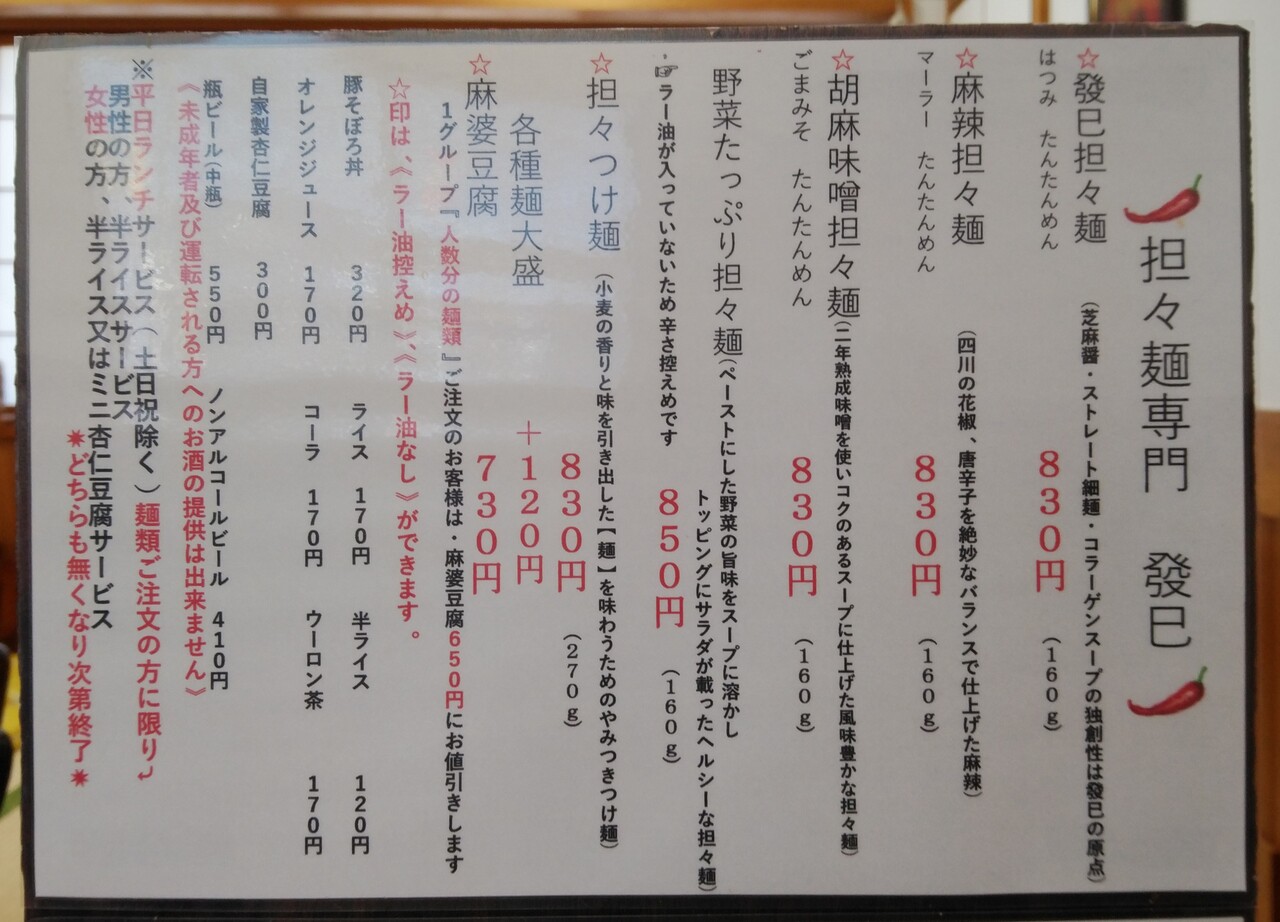 担々麺専門 發巳
☆發巳担々麺
（芝麻醤・ストレート細麺・コラーゲンスープの独創性は發巳の原点）
はつみ たんたんめん
830円（160g）
☆麻辣担々麺
（四川の花椒、唐辛子を絶妙なバランスで仕上げた麻辣）
マーラー たんたんめん
830円（160g）
☆胡麻味噌担々麺（二年熟成味噌を使いコクのあるスープに仕上げた風味豊かな担々麺）
ごまみそ たんたんめん
830円（160g）
野菜たっぷり担々麺（ペーストにした野菜の旨味をスープに溶かし
トッピングにサラダが載ったヘルシーな担々麺）
☞ラー油が入っていないため辛さ控えめです
850円（160g）
☆担々つけ麺（小麦の香りと味を引き出した【麺】を味わうためのやみつきつけ麺）
830円（270g）
各種麺大盛 ＋120円
☆麻婆豆腐 730円
1グループ『人数分の麺類』ご注文のお客様は・麻婆豆腐650円にお値引きします
☆印は、《ラー油控えめ》、《ラー油なし》ができます。
豚そぼろ丼 320円 ライス 170円 半ライス 120円
オレンジジュース 170円 コーラ 170円 ウーロン茶 170円
自家製杏仁豆腐 300円
瓶ビール（中瓶） 550円 ノンアルコールビール 410円
《未成年者及び運転される方へのお酒の提供は出来ません》
※平日ランチサービス（土日祝除く）麺類ご注文の方に限り⤶
男性の方、半ライスサービス
女性の方、半ライス又はミニ杏仁豆腐サービス
✷どちらも無くなり次第終了✷